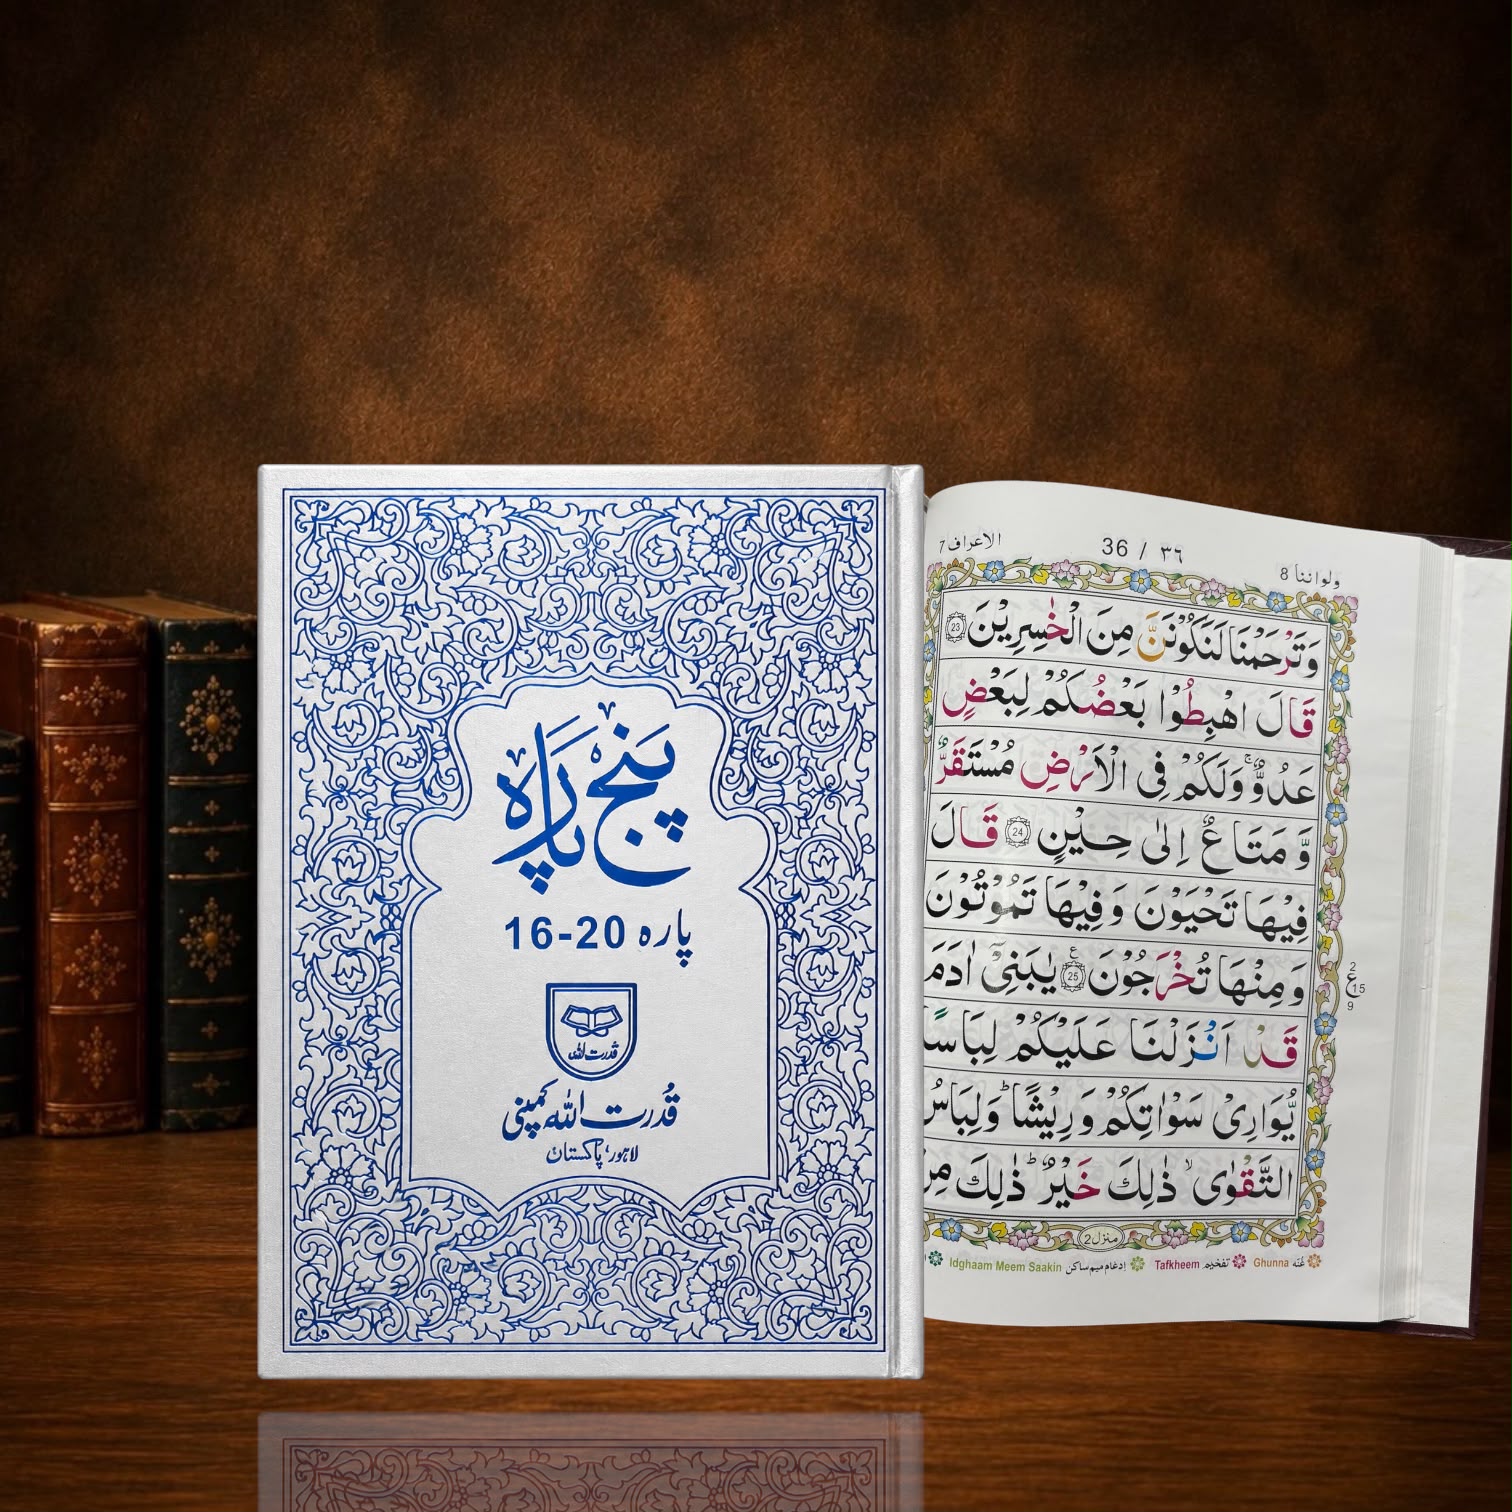 پَنج پَارَہ
پارہ 16-20
قدرت اللہ
قُدرت اللہ کمپنی
لاہور، پاکستان
الاعراف 7
36 / ٣٦
ولواننا 8
وَتَرْحَمْنَا لَنَكُوْنَنَّ مِنَ الْخٰسِرِيْنَ 23
قَالَ اهْبِطُوْا بَعْضُكُمْ لِبَعْضٍ
عَدُوٌّ ۚ وَلَكُمْ فِى الْاَرْضِ مُسْتَقَرٌّ
وَّ مَتَاعٌ اِلٰى حِيْنٍ 24 قَالَ
فِيْهَا تَحْيَوْنَ وَ فِيْهَا تَمُوْتُوْنَ
وَ مِنْهَا تُخْرَجُوْنَ 25 ع يٰبَنِىْٓ اٰدَمَ
2
ع 15
9
قَدْ اَنْزَلْنَا عَلَيْكُمْ لِبَاسًا
يُّوَارِىْ سَوْاٰتِكُمْ وَرِيْشًا ؕ وَلِبَاسُ
التَّقْوٰى ۙ ذٰلِكَ خَيْرٌ ؕ ذٰلِكَ مِنْ
منزل 2
Idghaam Meem Saakin ادغام میم ساکن Tafkheem تفخیم Ghunna غُنّه